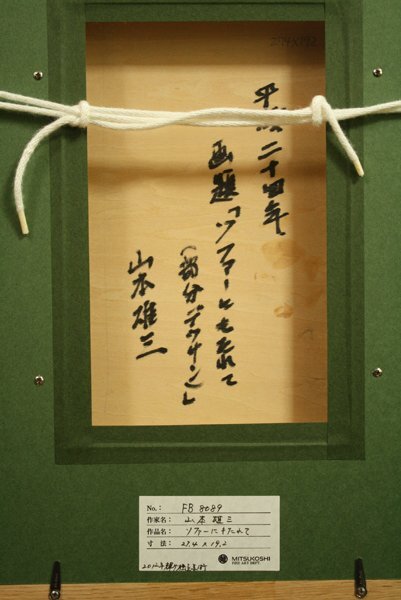 27.4×19.2
平成二十四年
画題「ソファーにもたれて
(部分デッサン)」
山本雄三
No.: FB 8089
作家名: 山本雄三
作品名: ソファーにもたれて
寸法: 27.4 × 19.2
MITSUKOSHI
FINE ART DEPT.